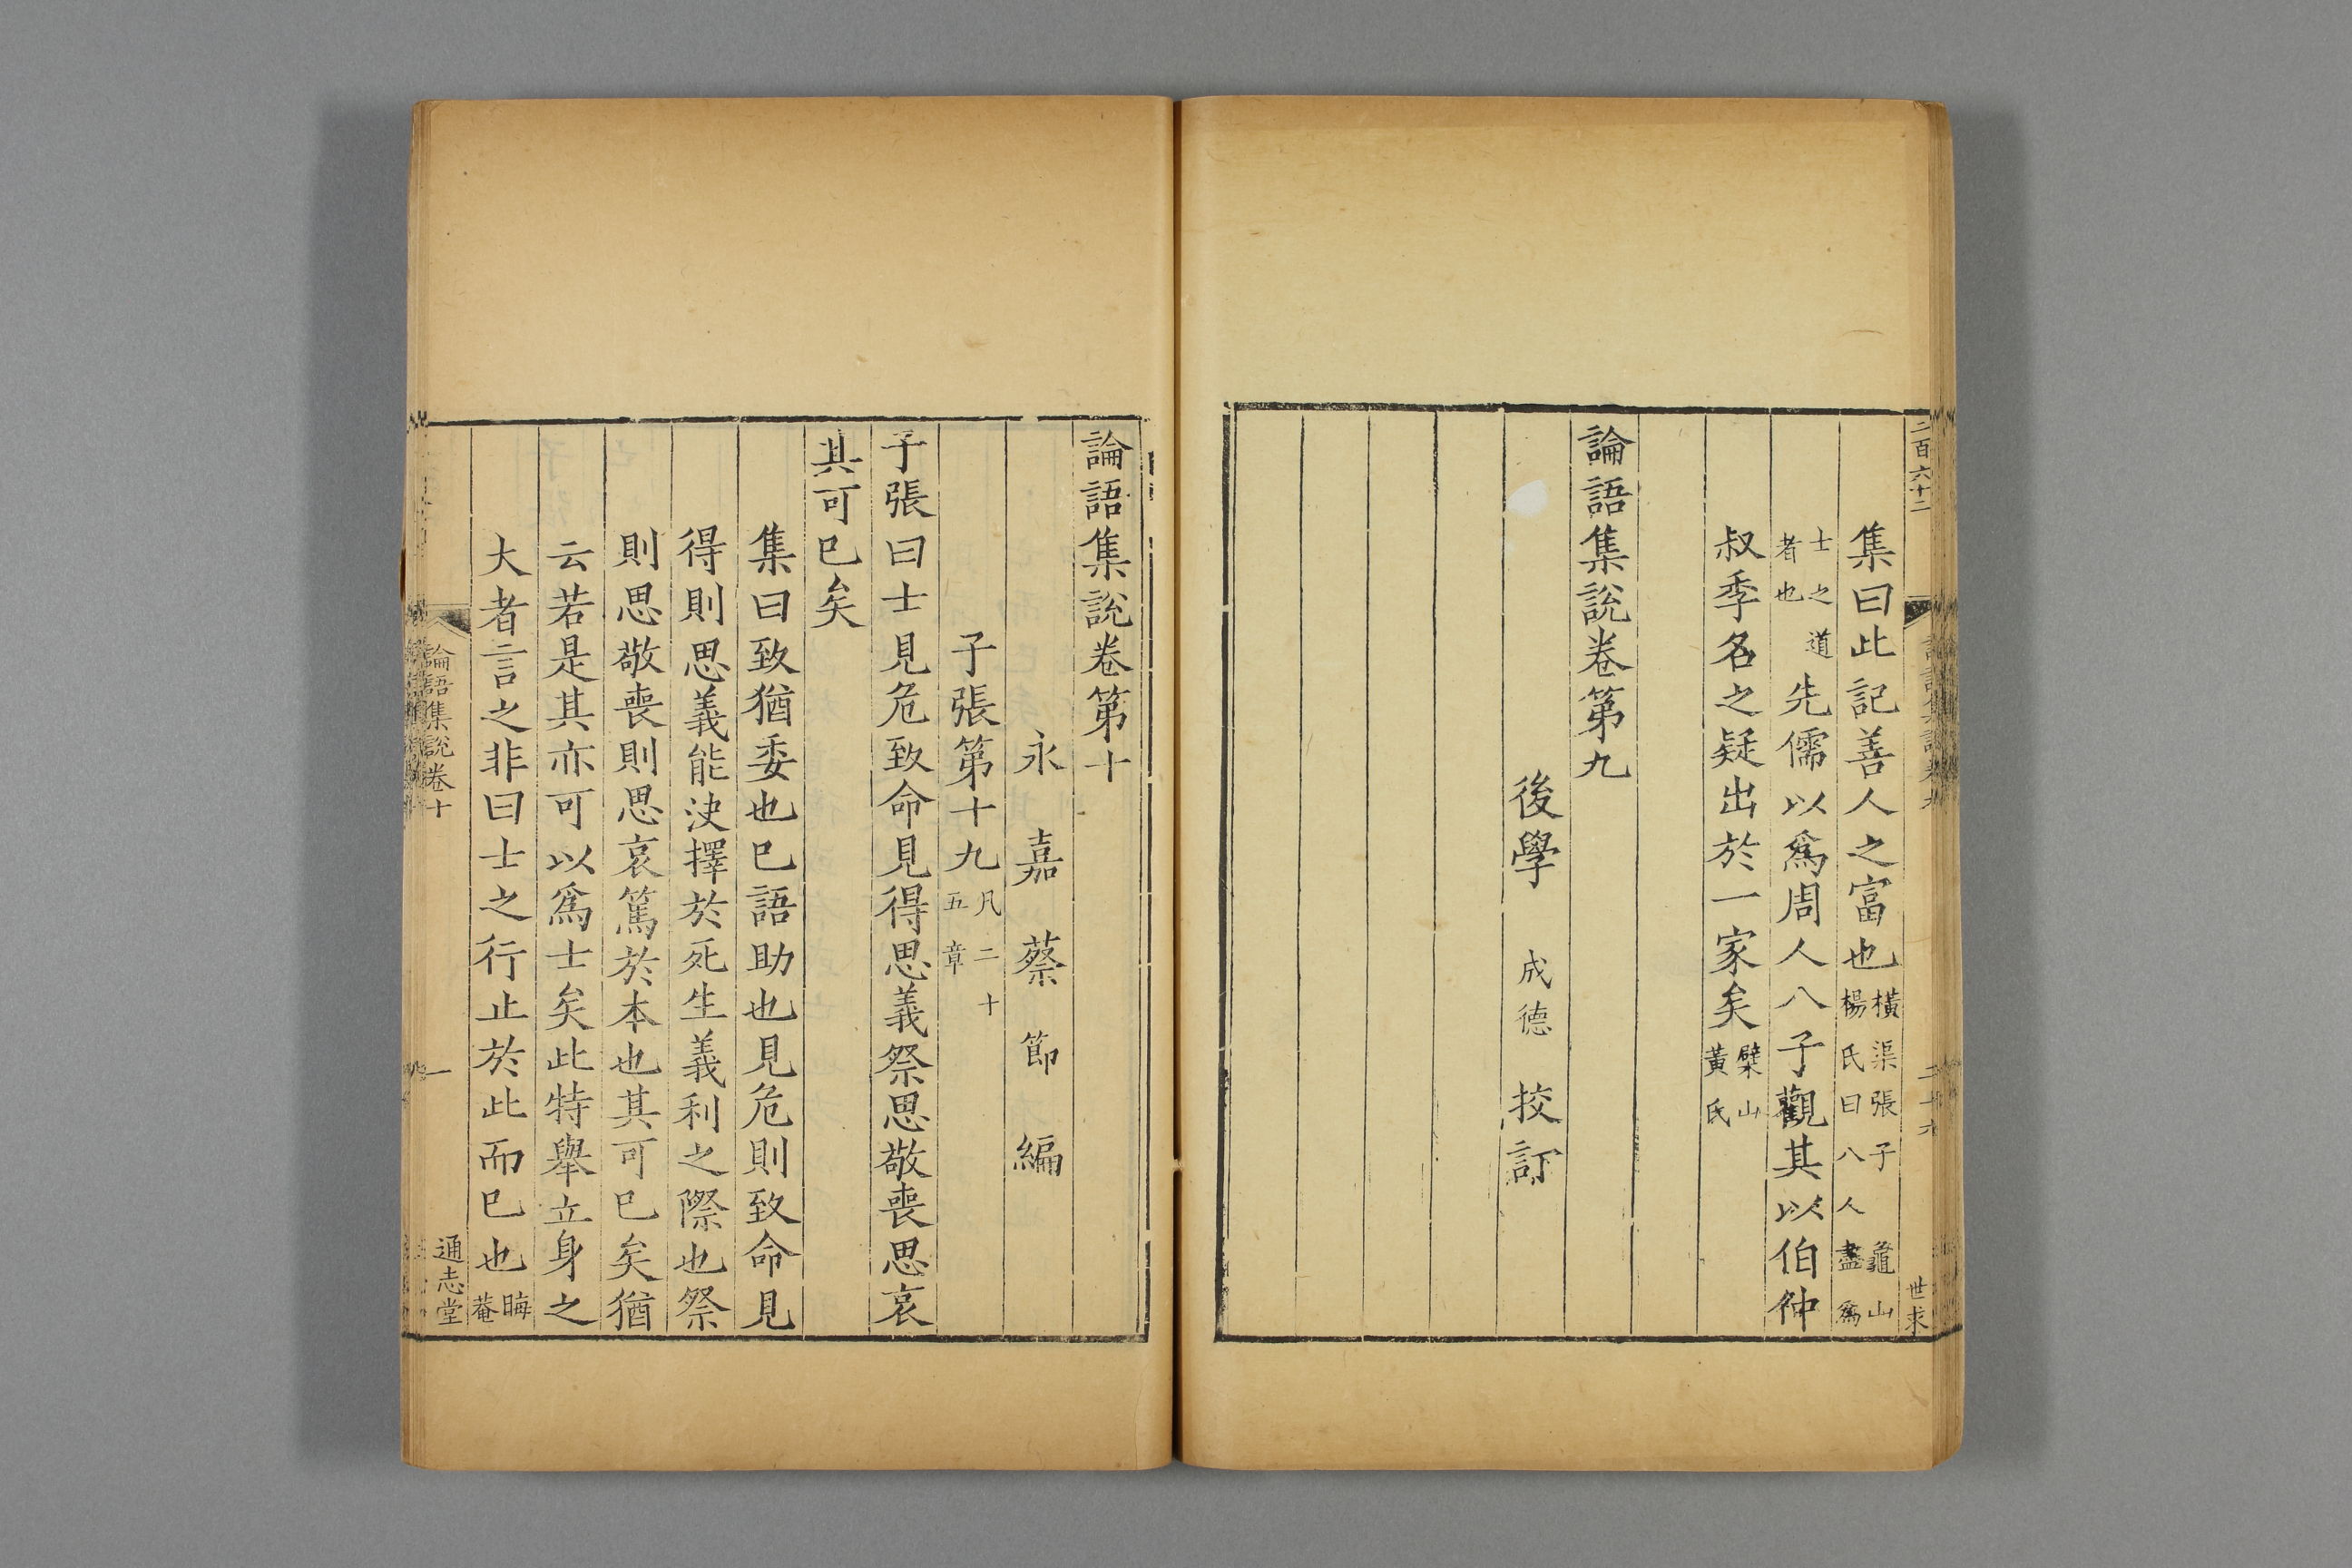 二百六十二
世求
集曰此記善人之富也橫渠張子龜山楊氏曰八人盡爲
士之道者也先儒以爲周人八子觀其以伯仲
叔季名之疑出於一家矣檗山黃氏
論語集説卷第九
後學成德挍訂
論語集説卷第十
永嘉蔡節編
子張第十九凡二十五章
子張曰士見危致命見得思義祭思敬喪思哀
其可已矣
集曰致猶委也已語助也見危則致命見
得則思義能决擇於死生義利之際也祭
則思敬喪則思哀篤於本也其可已矣猶
云若是其亦可以爲士矣此特舉立身之
大者言之非曰士之行止於此而已也晦菴
論語集説卷十
一
通志堂